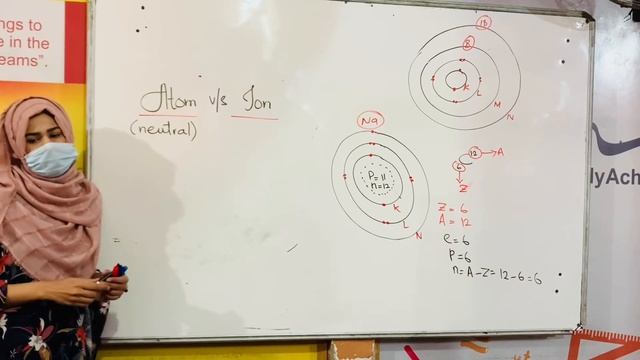 ngs to
e in the
eams".
Atom v/s Ion
(neutral)
18
8
K
L
M
N
Na
P=11
n=12
K
L
N
12 → A
6
Z
Z = 6
A = 12
e = 6
P = 6
n = A - Z = 12 - 6 = 6
lyAch